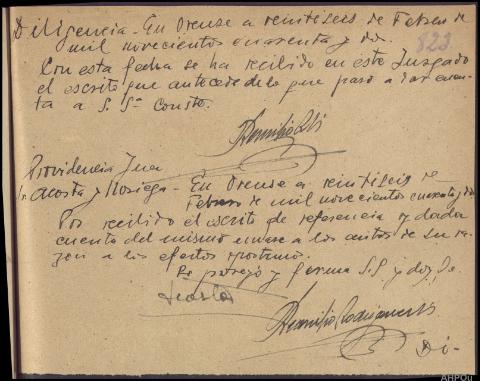 Diligencia - En Orense a veintiseis de Febrero de
mil novecientos cuarenta y dos.
823
Con esta fecha se ha recibido en este Juzgado
el escrito que antecede de lo que paso a dar cuen-
ta a S. Sª Consto.
Providencia Juez
Sr Acosta y Noriega - En Orense a veintiseis de
Febrero de mil novecientos cuarenta y dos
Por recibido el escrito de referencia y dada
cuenta del mismo unase a los autos de su ra-
zon a los efectos oportunos.
Lo proveyó y firma S.S. y doy fe.
Acosta
Di-
AHPOu